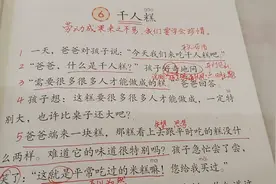 6 千人糕
劳动成果来之不易,我们要学会珍惜。
1 一天,爸爸对孩子说:“今天我们来吃千人糕吧!”
2 “爸爸,什么是千人糕?”孩子好奇地问。
3 “需要很多很多人才能做成的糕。”爸爸回答。
4 孩子想:这糕要很多很多人才能做成,一定特
别大,也许比桌子还大吧?
5 爸爸端来一块糕,那糕看上去跟平时吃的糕没什
么两样。难道它的味道很特别吗?孩子急忙尝了尝,
笑了:“这就是平常吃过的米糕嘛!您给我买过。”